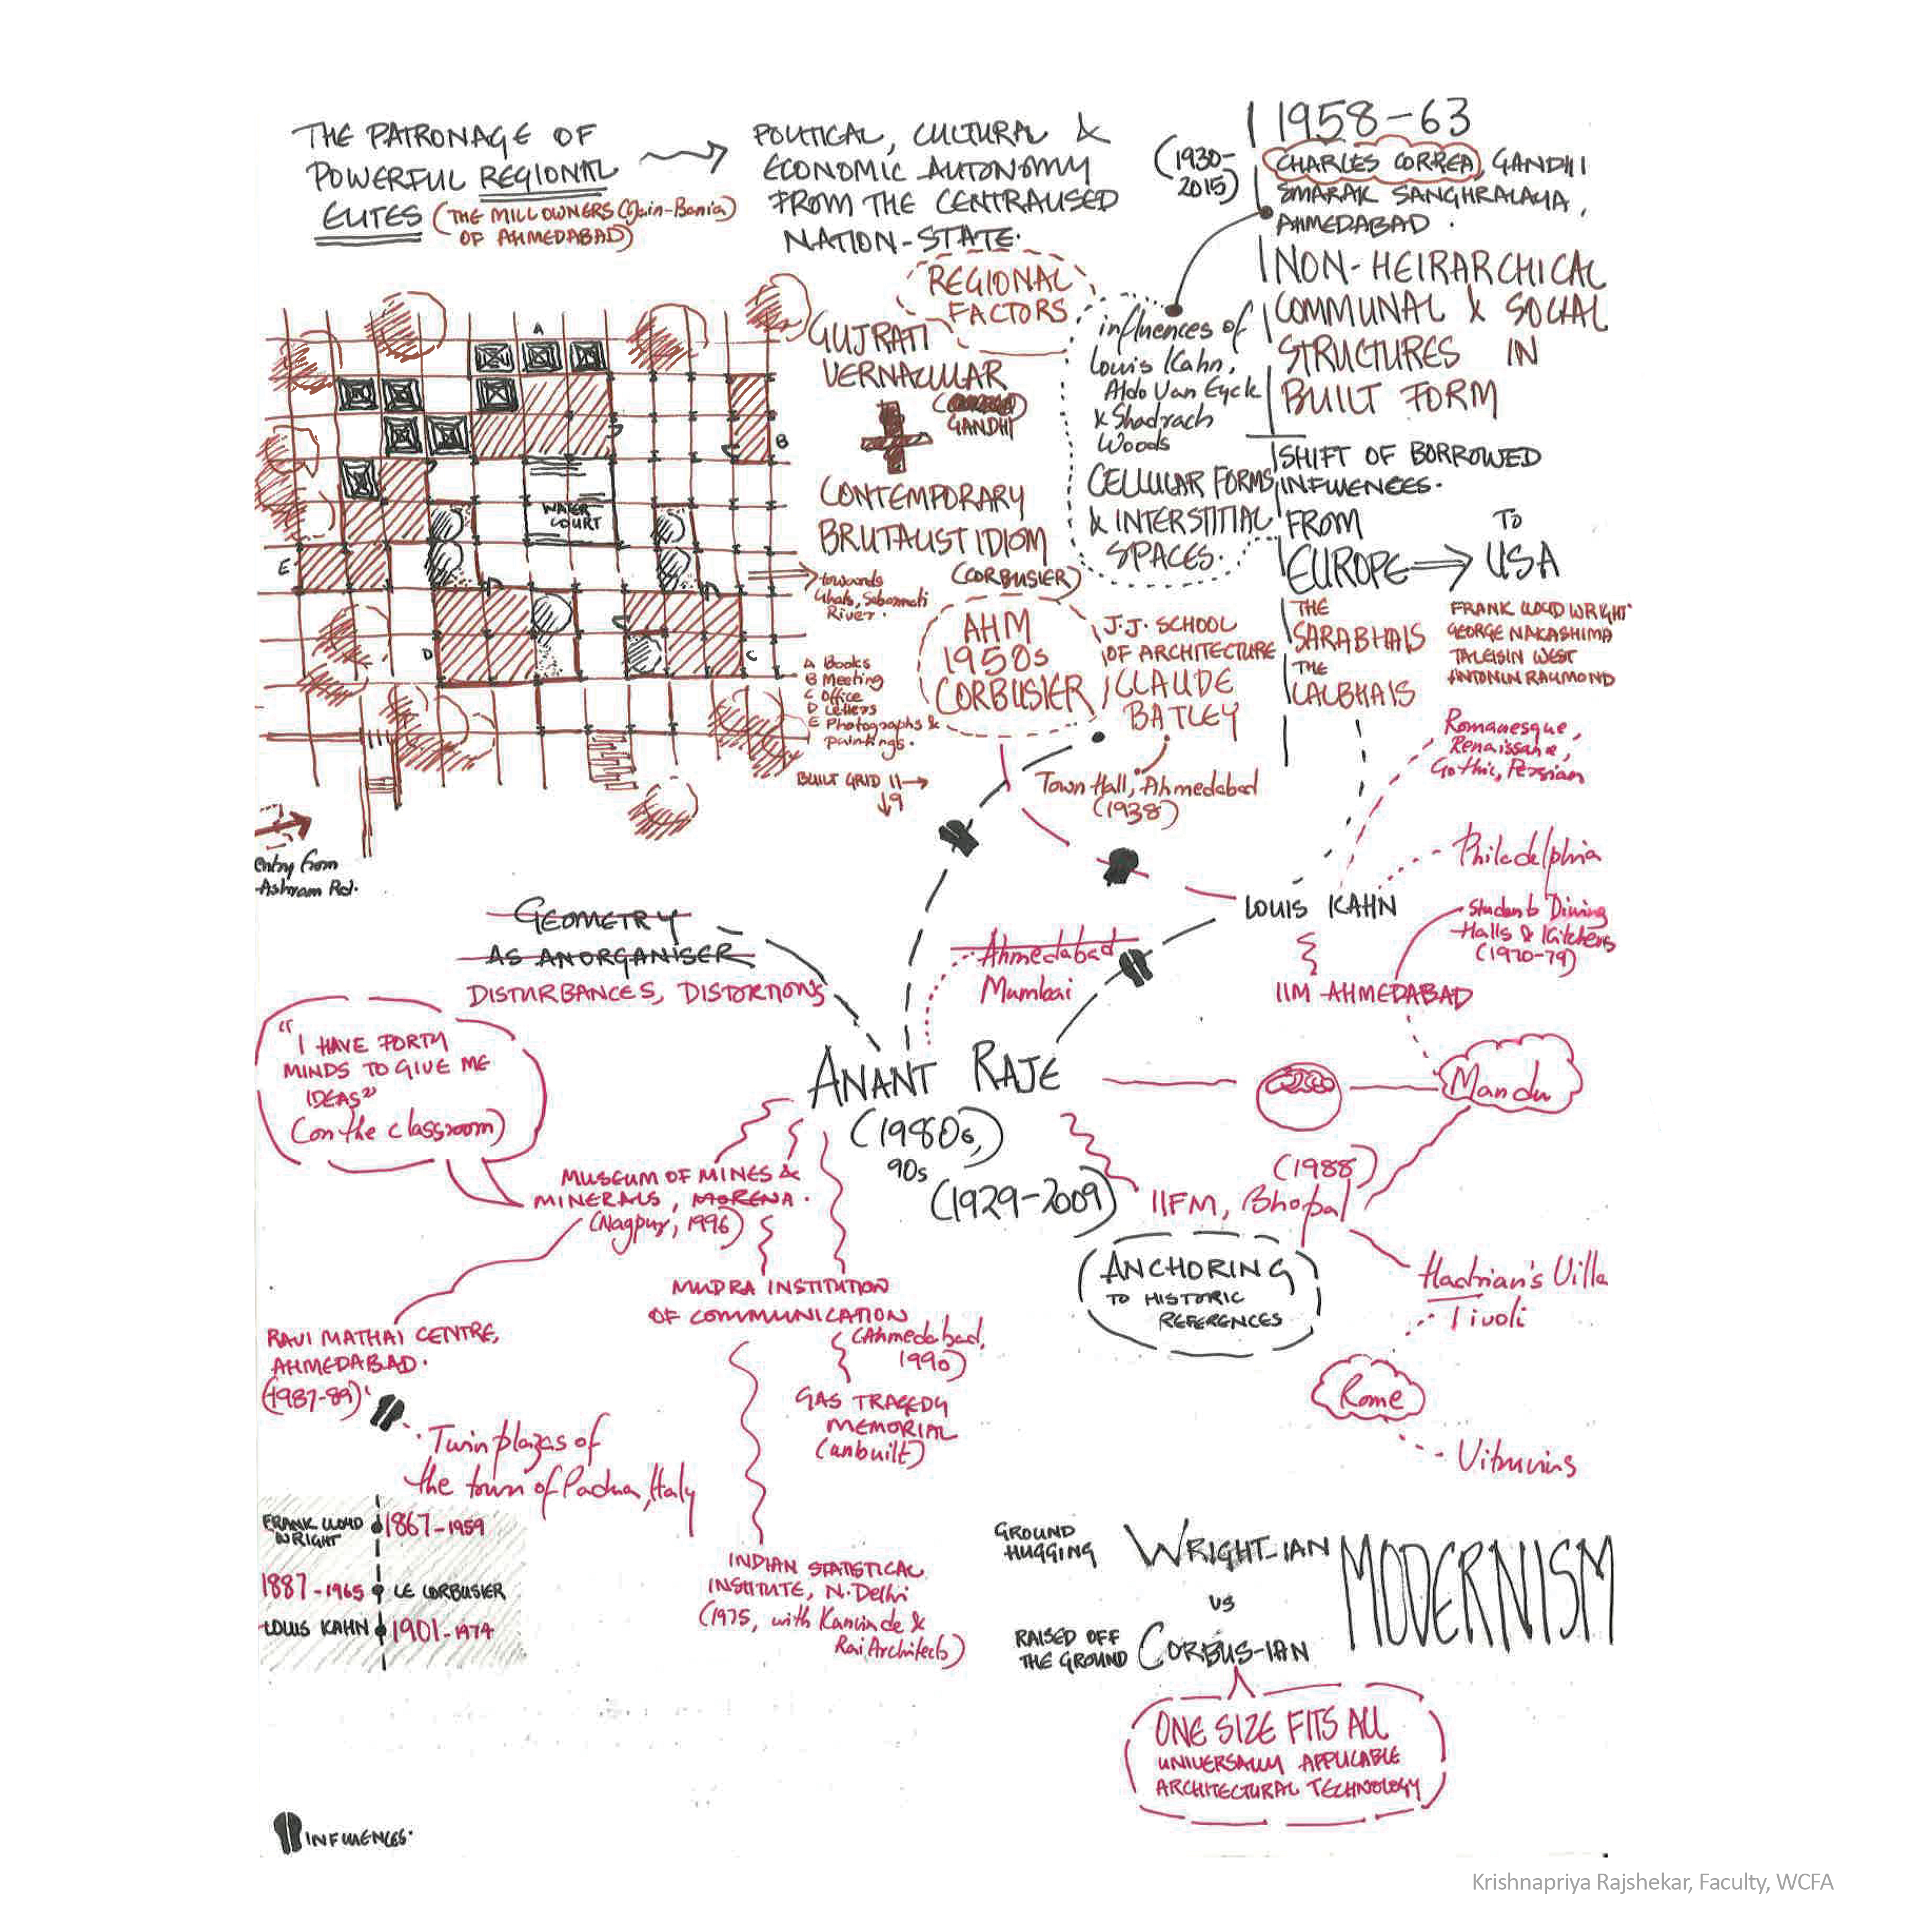 THE PATRONAGE OF
POWERFUL REGIONAL
ELITES (THE MILL OWNERS (Jain-Bania)
OF AHMEDABAD)
POLITICAL, CULTURAL &
ECONOMIC AUTONOMY
FROM THE CENTRALISED
NATION-STATE.
1958-63
(1930-
2015)
CHARLES CORREA, GANDHI
SMARAK SANGHRALAYA,
AHMEDABAD.
NON-HEIRARCHICAL
COMMUNAL & SOCIAL
STRUCTURES IN
BUILT FORM
REGIONAL
FACTORS
GUJRATI
VERNACULAR
GANDHI
CONTEMPORARY
BRUTALIST IDIOM
(CORBUSIER)
influences of
Louis Kahn,
Aldo Van Eyck
& Shadrach
Woods
CELLULAR FORMS
& INTERSTITIAL
SPACES.
SHIFT OF BORROWED
INFLUENCES.
FROM TO
EUROPE USA
THE
SARABHAIS
THE
LALBHAIS
FRANK LLOYD WRIGHT
GEORGE NAKASHIMA
TALEISIN WEST
ANTONIN RAYMOND
A
B
WATER
COURT
E
D
C
towards
Ghats, Sabarmati
River.
A Books
B Meeting
C Office
D Letters
E Photographs &
paintings.
BUILT GRID
entry from
Ashram Rd.
AHM
1950s
CORBUSIER
J.J. SCHOOL
OF ARCHITECTURE
CLAUDE
BATLEY
Town Hall, Ahmedabad
(1938)
Romanesque,
Renaissance,
Gothic, Persian
Philadelphia
LOUIS KAHN
Students Dining
Halls & Kitchens
(1970-79)
IIM AHMEDABAD
GEOMETRY
AS AN ORGANISER
DISTURBANCES, DISTORTIONS
Ahmedabad
Mumbai
"I HAVE FORTY
MINDS TO GIVE ME
IDEAS"
(on the classroom)
ANANT RAJE
(1980s,)
90s
(1929-2009)
Mandu
MUSEUM OF MINES &
MINERALS, MORENA.
(Nagpur, 1996)
(1988)
IIFM, Bhopal
ANCHORING
TO HISTORIC
REFERENCES
Hadrian's Villa
Tivoli
Rome
Vitruvius
MUDRA INSTITUTION
OF COMMUNICATION
(Ahmedabad,
1990)
GAS TRAGEDY
MEMORIAL
(unbuilt)
RAVI MATHAI CENTRE,
AHMEDABAD.
(1987-89)
Twin plazas of
the town of Padua, Italy
INDIAN STATISTICAL
INSTITUTE, N. Delhi
(1975, with Kanvinde &
Rai Architects)
FRANK LLOYD
WRIGHT
1867-1959
1887-1965 LE CORBUSIER
LOUIS KAHN 1901-1974
GROUND
HUGGING
WRIGHT-IAN
VS
RAISED OFF
THE GROUND
CORBUS-IAN
MODERNISM
ONE SIZE FITS ALL
UNIVERSALLY APPLICABLE
ARCHITECTURAL TECHNOLOGY
INFLUENCES.
Krishnapriya Rajshekar, Faculty, WCFA